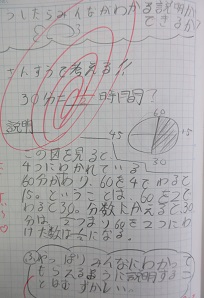 うしたらみんながわかる説明が
できるか?
分すうで考える!!
30分=  時間?
説明
60
45
15
30
この図を見ると、
4つにわかれている。
60分かわり、60を4でわると
15。ということは、60を2で
わると30。分数にかえると、30
分は、2つまり60を2つにわ
けた数は になる。
やっぱりみんなにわかって
もらえるように説明するこ
とはむずかしい。